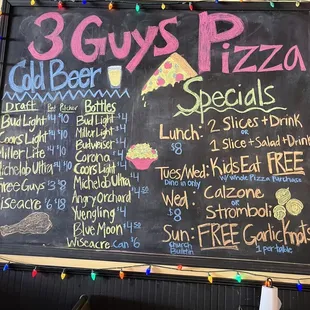 3 Guys Pizza
Cold Beer
Draft Pint Pitcher
Bud Light $4 $10
Coors Light $4 $10
Miller Lite $4 $10
Michelob Ultra $4 $10
Three Guys $3 $8
Wiseacre $6
Bottles
Bud Light $4
Miller Light $4
Budweiser $4
Corona $4
Coors Light $4
Michelob Ultra $4
Angry Orchard $4
Yuengling $4
Blue Moon $4.50
Wiseacre Can $6
Specials
Lunch: 2 Slices + Drink
$8 or
1 Slice + Salad + Drink
Tues/Wed: Kids Eat FREE
Dine in Only w/ Whole Pizza Purchase
Wed: Calzone
$8 or
Stromboli
Sun: FREE Garlic Knots
Church Bulletin 1 per table